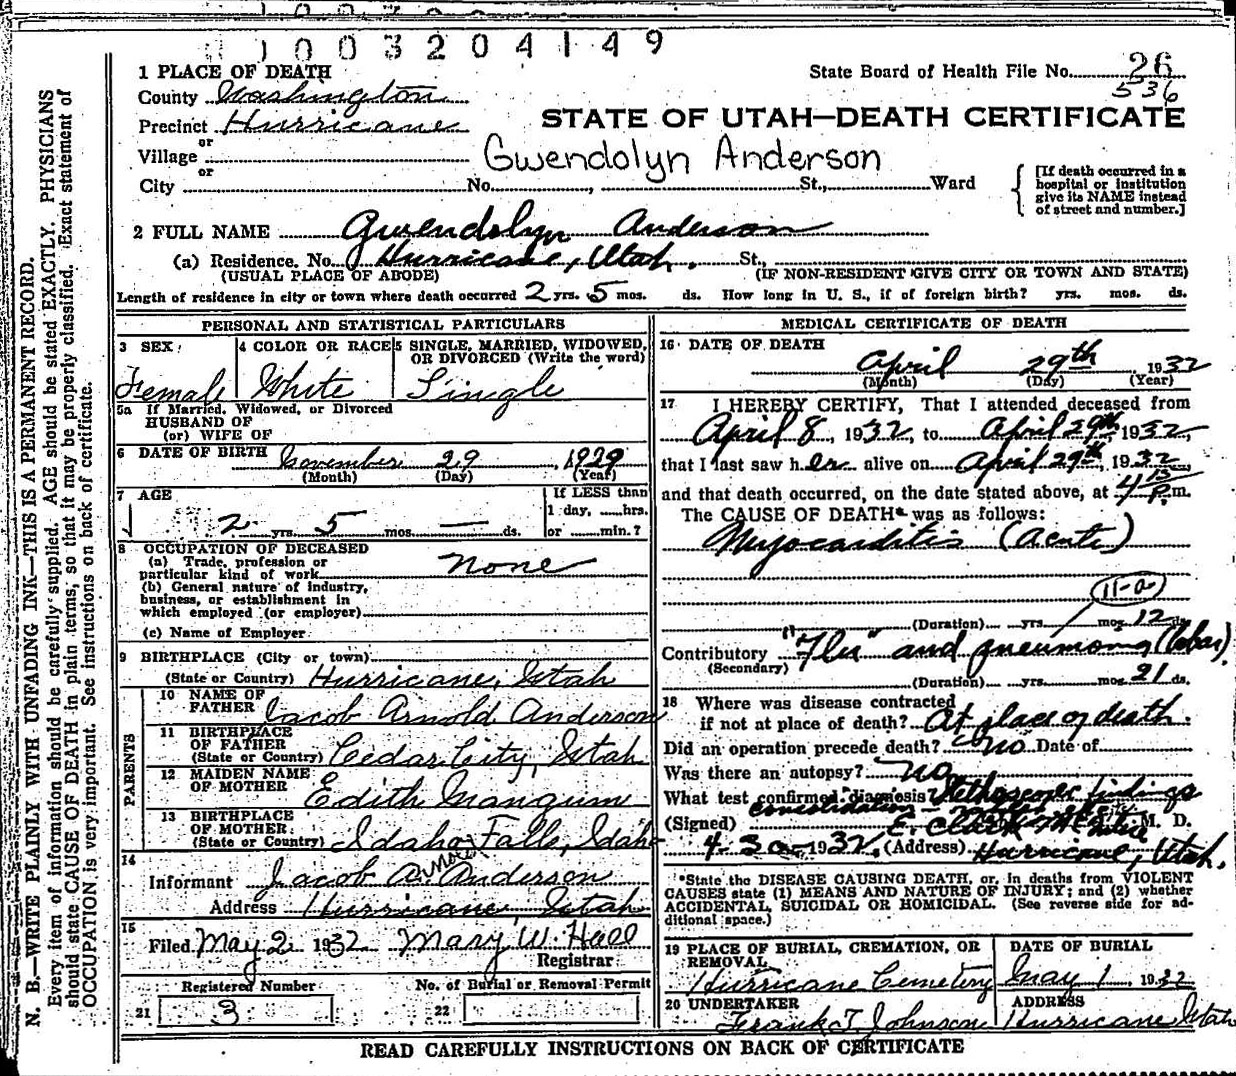 1003204149
1 PLACE OF DEATH
State Board of Health File No. 26
536
County Washington
STATE OF UTAH—DEATH CERTIFICATE
Precinct Hurricane
or
Village
Gwendolyn Anderson
or
City No. , St., Ward
[If death occurred in a
hospital or institution
give its NAME instead
of street and number.]
2 FULL NAME Gwendolyn Anderson
(a) Residence. No. Hurricane, Utah. St.,
(USUAL PLACE OF ABODE) (IF NON-RESIDENT GIVE CITY OR TOWN AND STATE)
Length of residence in city or town where death occurred 2 yrs. 5 mos. ds. How long in U. S., if of foreign birth? yrs. mos. ds.
PERSONAL AND STATISTICAL PARTICULARS
3 SEX 4 COLOR OR RACE 5 SINGLE, MARRIED, WIDOWED,
OR DIVORCED (Write the word)
Female White Single
5a If Married, Widowed, or Divorced
HUSBAND OF
(or) WIFE OF
6 DATE OF BIRTH November 29, 1929
(Month) (Day) (Year)
7 AGE If LESS than
1 day, hrs.
2 yrs. 5 mos. — ds. or min.?
8 OCCUPATION OF DECEASED
(a) Trade, profession or
particular kind of work None
(b) General nature of industry,
business, or establishment in
which employed (or employer)
(c) Name of Employer
9 BIRTHPLACE (City or town)
(State or Country) Hurricane, Utah
PARENTS
10 NAME OF
FATHER Jacob Arnold Anderson
11 BIRTHPLACE
OF FATHER
(State or Country) Cedar City, Utah
12 MAIDEN NAME
OF MOTHER Edith Mangum
13 BIRTHPLACE
OF MOTHER
(State or Country) Idaho Falls, Idaho
14
Informant Jacob A. Anderson
Address Hurricane, Utah
15
Filed May 2 1932 Mary W. Hall
Registrar
Registered Number No. of Burial or Removal Permit
21 3 22
MEDICAL CERTIFICATE OF DEATH
16 DATE OF DEATH
April 29th, 1932
(Month) (Day) (Year)
17 I HEREBY CERTIFY, That I attended deceased from
April 8, 1932, to April 29th 1932,
that I last saw her alive on April 29th, 1932
and that death occurred, on the date stated above, at 4 15 P.m.
The CAUSE OF DEATH* was as follows:
Myocarditis (acute)
11-a
(Duration) yrs. mos. 12 ds.
Contributory "Flu" and pneumonia (lobar).
(Secondary)
(Duration) yrs. mos. 21 ds.
18 Where was disease contracted
if not at place of death? At place of death.
Did an operation precede death? no Date of
Was there an autopsy? no
What test confirmed diagnosis? Stethoscopic findings
consolidation
(Signed) E. Clark McIntire M. D.
4-30-1932. (Address) Hurricane, Utah.
*State the DISEASE CAUSING DEATH, or, in deaths from VIOLENT
CAUSES state (1) MEANS AND NATURE OF INJURY; and (2) whether
ACCIDENTAL, SUICIDAL OR HOMICIDAL. (See reverse side for ad-
ditional space.)
19 PLACE OF BURIAL, CREMATION, OR
REMOVAL
DATE OF BURIAL
Hurricane Cemetery May 1, 1932
20 UNDERTAKER ADDRESS
Frank T. Johnson Hurricane Utah
READ CAREFULLY INSTRUCTIONS ON BACK OF CERTIFICATE
N. B.—WRITE PLAINLY WITH UNFADING INK—THIS IS A PERMANENT RECORD.
Every item of information should be carefully supplied. AGE should be stated EXACTLY. PHYSICIANS
should state CAUSE OF DEATH in plain terms, so that it may be properly classified. Exact statement of
OCCUPATION is very important. See instructions on back of certificate.